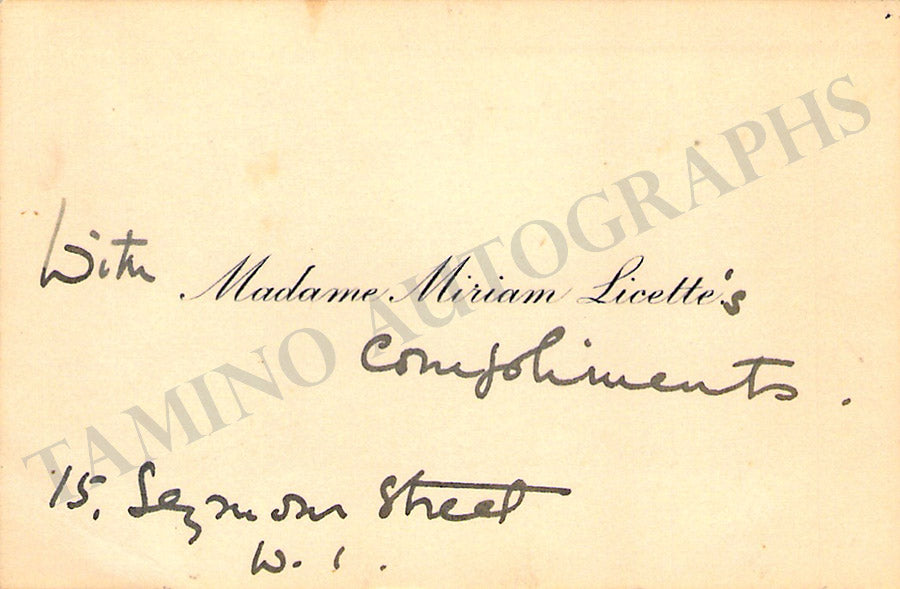 With Madame Miriam Licette's
Compliments.
15, Seymour Street
W. 1.
TAMINO AUTOGRAPHS